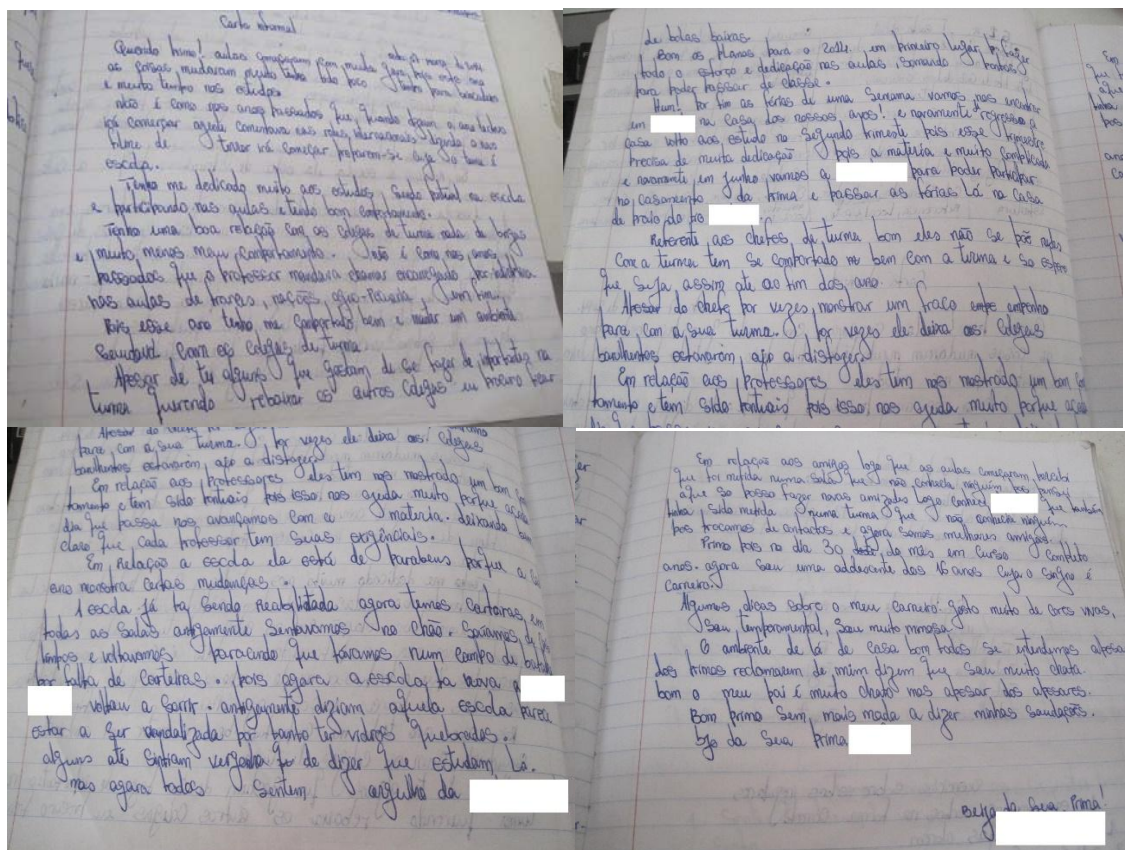 Carta informal
Querido primo! aulas começaram com muita
as coisas mudaram muito tenho tido pouco tempo para brincadeira
e muito tempo nos estudos.
não é como nos anos passados que, quando alguem
irá começar aquela comentava nas redes,
filme de terror irá começar preparem-se cujo o tema é
escola.
Tenho me dedicado muito aos estudos, sendo pontual na escola
e participando nas aulas e tendo bom comportamento.
Tenho uma boa relação com os colegas de turma nada de brigas
e muito menos mau comportamento. Não é como nos anos
passados que o professor mandava chamar encarregado por
nas aulas de francês, noções, agro-Pecuaria, enfim.
Pois esse ano tenho me comportado bem e manter um ambiente
saudavel com os colegas de turma.
Apesar de ter alguns que gostam de se fazer de importantes na
turma querendo rebaixar os outros colegas
de bolas baixas.
Bom os planos para o 2014 em primeiro lugar é fazer
todo o esforço e dedicação nas aulas, somando pontos
para poder passar de classe.
Hum! Por fim as férias de uma semana vamos nos encontrar
em na casa dos nossos avos! e novamente regresso a
casa volto aos estudo no segundo trimestre pois esse trimestre
precisa de muita dedicação pois a materia e muito complicada
e novamente em junho vamos a para poder participar
no casamento da prima e passar as férias lá na casa
de praia do tio
Referente aos chefes da turma bom eles não se pôe
com a turma tem se comportado bem com a turma e so espero
que seja assim até ao fim dos ano.
Apesar do chefe por vezes monstrar um fraco empenho
para com a sua turma. Por vezes ele deixa os colegas
barulhentos estonarem, ajo a distaçer
Em relação aos professores eles tem nos mostrado um bom
tamento e tem sido pontuais pois isso nos ajuda muito porque a cada
dia que passa nos avançamos com a materia. deixando
claro que cada professor tem suas exigênciais.
Em Relação a escola ela está de parabens porque a cada
ano monstra certas mudanças.
A escola já ta sendo Reabilitada agora temos carteiras, em
todas as salas antigamente sentavamos no chão. Saiamos de
limpos e voltavamos paracindo que távamos num campo de
por falta de carteiras. pois agora a escola ta nova
voltou a sorrir. antigamente diziam aquela escola parece
estar a ser vandalizada por tanto ter vidros quebrados.
alguns até sintiam vergonha de dizer que estudam lá.
mas agora todos sentem orgulho da
Em relação aos amigos logo que as aulas começaram, percebi
que foi metida numa sala que não conhecia ninguém
aque so posso fazer novas amizades logo conheci que também
tinha sido metida numa turma que não conhecia ninguem
pos trocamos de contactos e agora somos melhores amigas.
Primo pois no dia 30 do mês em curso completo
anos. agora sou uma adolescente dos 16 anos cujo o signo é
carneiro.
Algumas dicas sobre o meu carneiro: gosto muito de cores vivas,
sou temporamental, sou muito mimosa.
O ambiente de lá de casa bom todos se intendimos apesar
dos primos reclamarem de mim dizem que sou muito chata.
bom o meu pai é muito chato mas apesar dos apesares.
Bom primo sem mais nada a dizer minhas saudações.
bjo da sua prima
Beijo da sua prima!